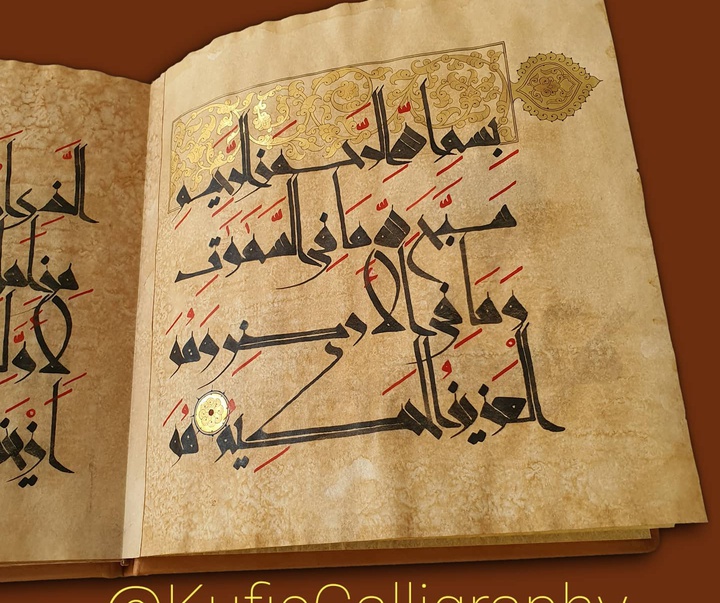 بسم الله الرحمن الرحيم
سبح لله ما فى السموت
وما فى الارض وهو
العزيز الحكيم هو
الذى
من
@KuficCalligraphy